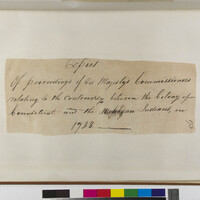 Of proceedings of his Majesty's Commissioners
relating to the controversy between the Colony of
Connecticut and the Mohegan Indians, in
1738